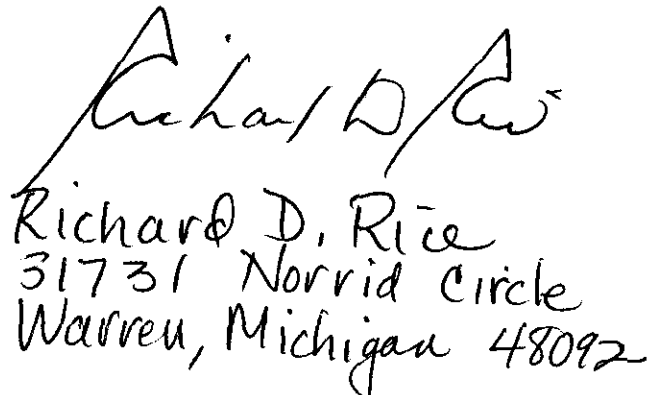 Richard D Rice
Richard D. Rice
31731 Norrid Circle
Warren, Michigan 48092